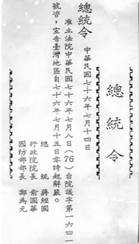 總統令
總統令 中華民國七十六年七月十四日
准立法院中華民國七十六年七月八日(76)台院議字第一六四一
號咨，宣告臺灣地區自七十六年七月十五日零時起解嚴。
總統 蔣經國
行政院院長 俞國華
國防部部長 鄭為元